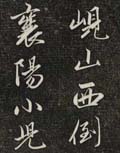 峴山西倒
襄陽小児